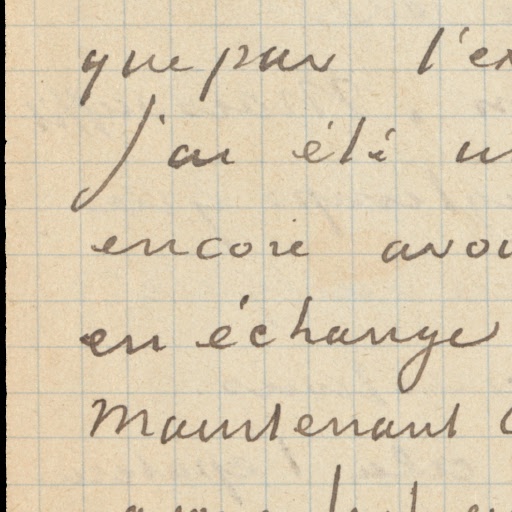 que par l'ex
j'ai été un
encore avoi
en échange
Maintenant